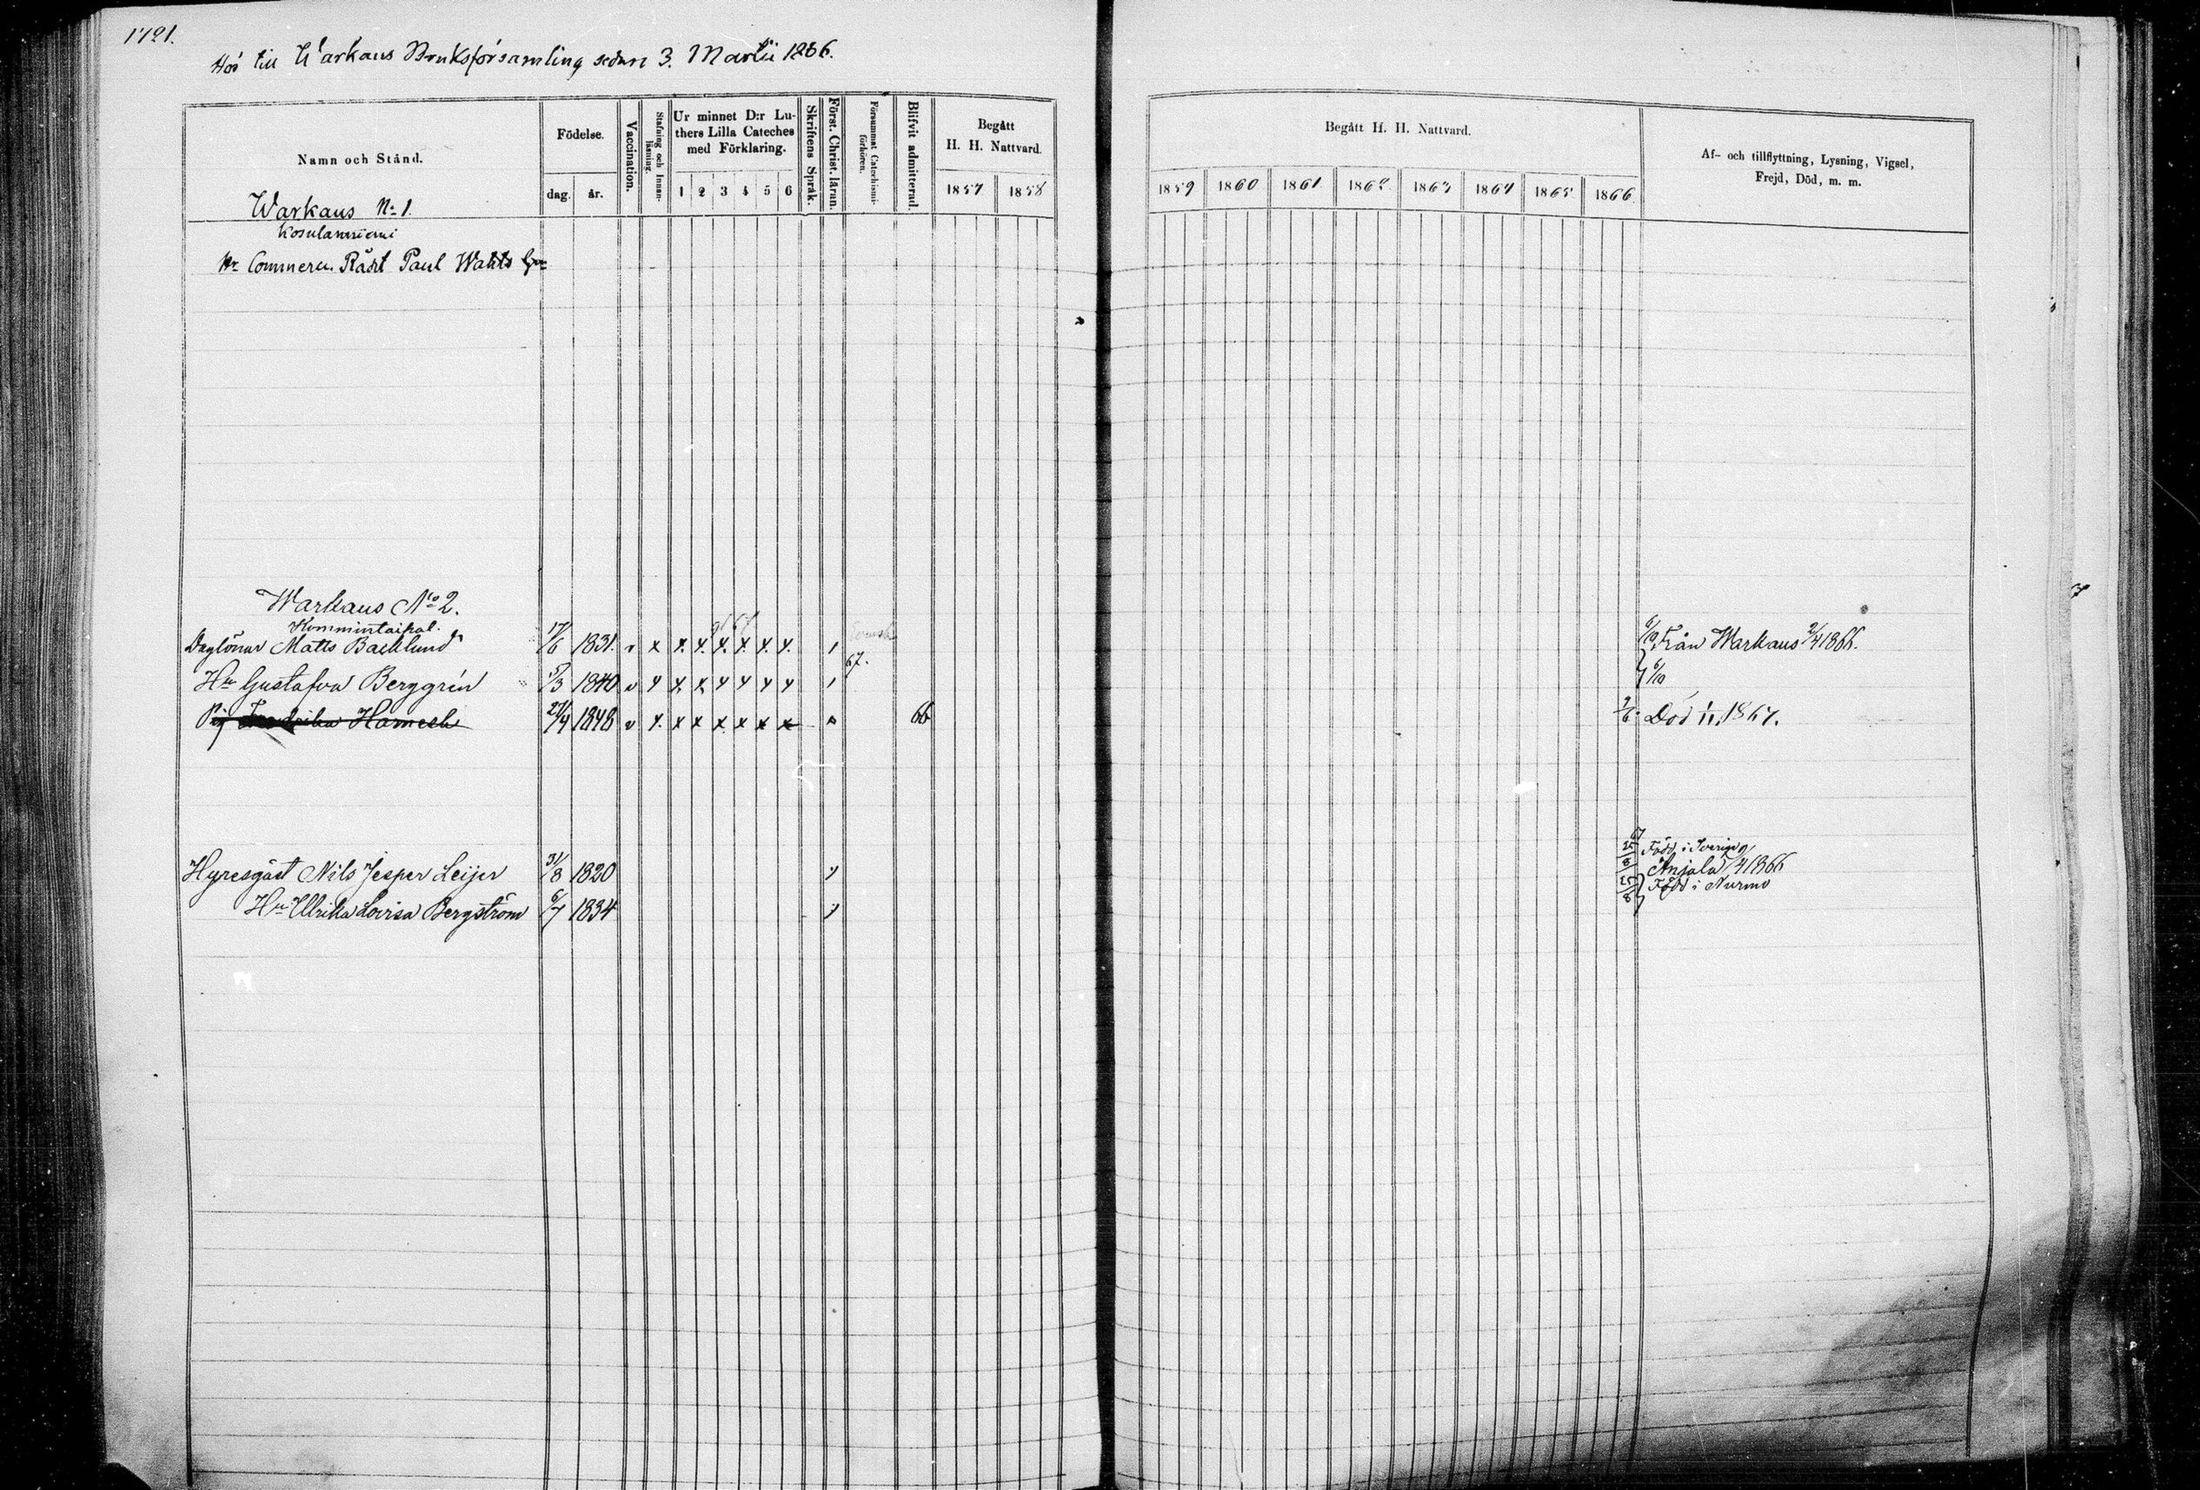 1721.
Hör till Warkaus Bruksförsamling sedan 3. Martii 1866.
Namn och Stånd.
Födelse.
dag. år.
Vaccination.
Stafning och Innanläsning.
Ur minnet D:r Luthers Lilla Cateches med Förklaring.
1 2 3 4 5 6
Skriftens Språk.
Först. Christ. läran.
Försummat Catechismiförhören.
Blifvit admitterad.
Begått H. H. Nattvard.
1857 1858
Begått H. H. Nattvard.
1859 1860 1861 1862 1863 1864 1865 1866
Af- och tillflyttning, Lysning, Vigsel, Frejd, Död, m. m.
Warkaus No 1.
Hr Commerce Rådt Paul Wahls
Warkaus No 2.
Daglönar Matts Backlund 17/6 1831. v x x x x x x x Från Warkaus 2/4 1866.
67.
Hu Gustafva Berggrén 5/3 1840 v x x x x x x x 6/10
Pig Fredrika 27/4 1848 v x x x x x x x 66 Död 1/11 1867.
Född i Sverige
Hyresgäst Nils Jesper Leijer 31/8 1820 Anjala /4 1866
Född i Nurmo
Hu Ulrika Lovisa Bergström 6/7 1834